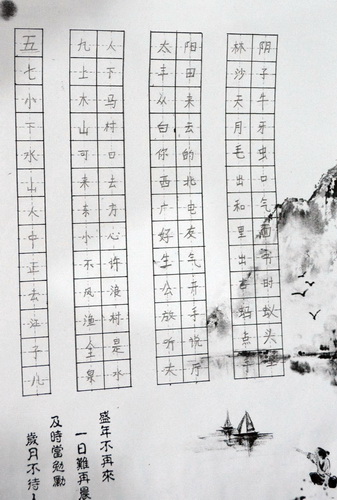 五七小下水山火中正去江子儿
九上木山可来东小不风渔全泉
人下马村口去方心许浪村是水
太丰从白你西广好生公放听大
阳田来云的北电友气开手说厅
林沙天月毛出和里出蚂点
阴子牛牙虫口气面时蚁头
盛年不再來
一日難再晨
及時當勉勵
歲月不待